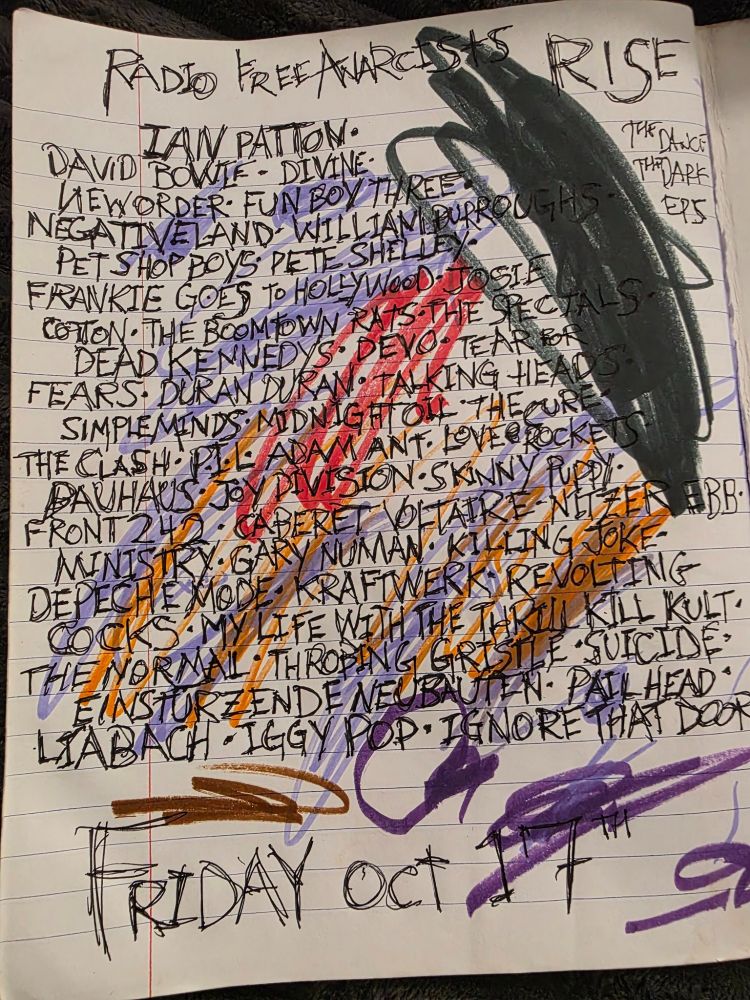 RADIO FREE ANARCISTS RISE
THE DANCE
THE DARK
EP.5
IAN PATTON·
DAVID BOWIE · DIVINE·
NEW ORDER· FUN BOY THREE·
NEGATIVELAND· WILLIAM BURROUGHS·
PET SHOP BOYS· PETE SHELLEY·
FRANKIE GOES TO HOLLYWOOD· JOSIE
COTTON· THE BOOMTOWN RATS· THE SPECIALS·
DEAD KENNEDYS· DEVO· TEAR FOR
FEARS· DURAN DURAN· TALKING HEADS·
SIMPLE MINDS· MIDNIGHT OIL· THE CURE·
THE CLASH· P.I.L· ADAM ANT· LOVE & ROCKETS
BAUHAUS· JOY DIVISION· SKINNY PUPPY·
FRONT 242· CABERET VOLTAIRE· NITZER EBB·
MINISTRY· GARY NUMAN· KILLING JOKE·
DEPECHE MODE· KRAFTWERK· REVOLTING
COCKS· MY LIFE WITH THE THRILL KILL KULT·
THE NORMAL· THROPING GRISTLE· SUICIDE·
EINSTURZENDE NEUBAUTEN· PAILHEAD·
LIABACH· IGGY POP· IGNORE THAT DOOR
FRIDAY OCT 17TH